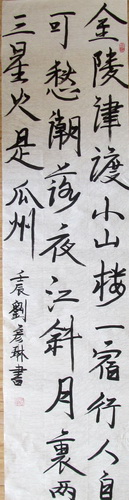 金陵津渡小山楼一宿行人自
可愁潮落夜江斜月裏两
三星火是瓜州
壬辰劉彦琳書